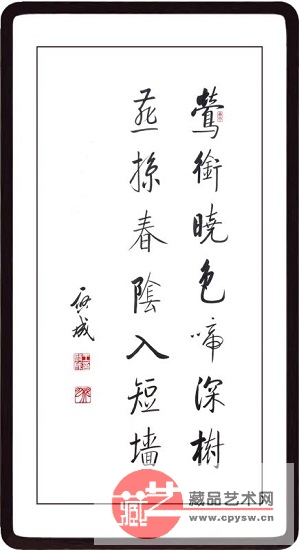 鶯銜晓色啼深樹
燕掠春陰入短墙
藏艺
藏品艺术网
www.cpysw.cn